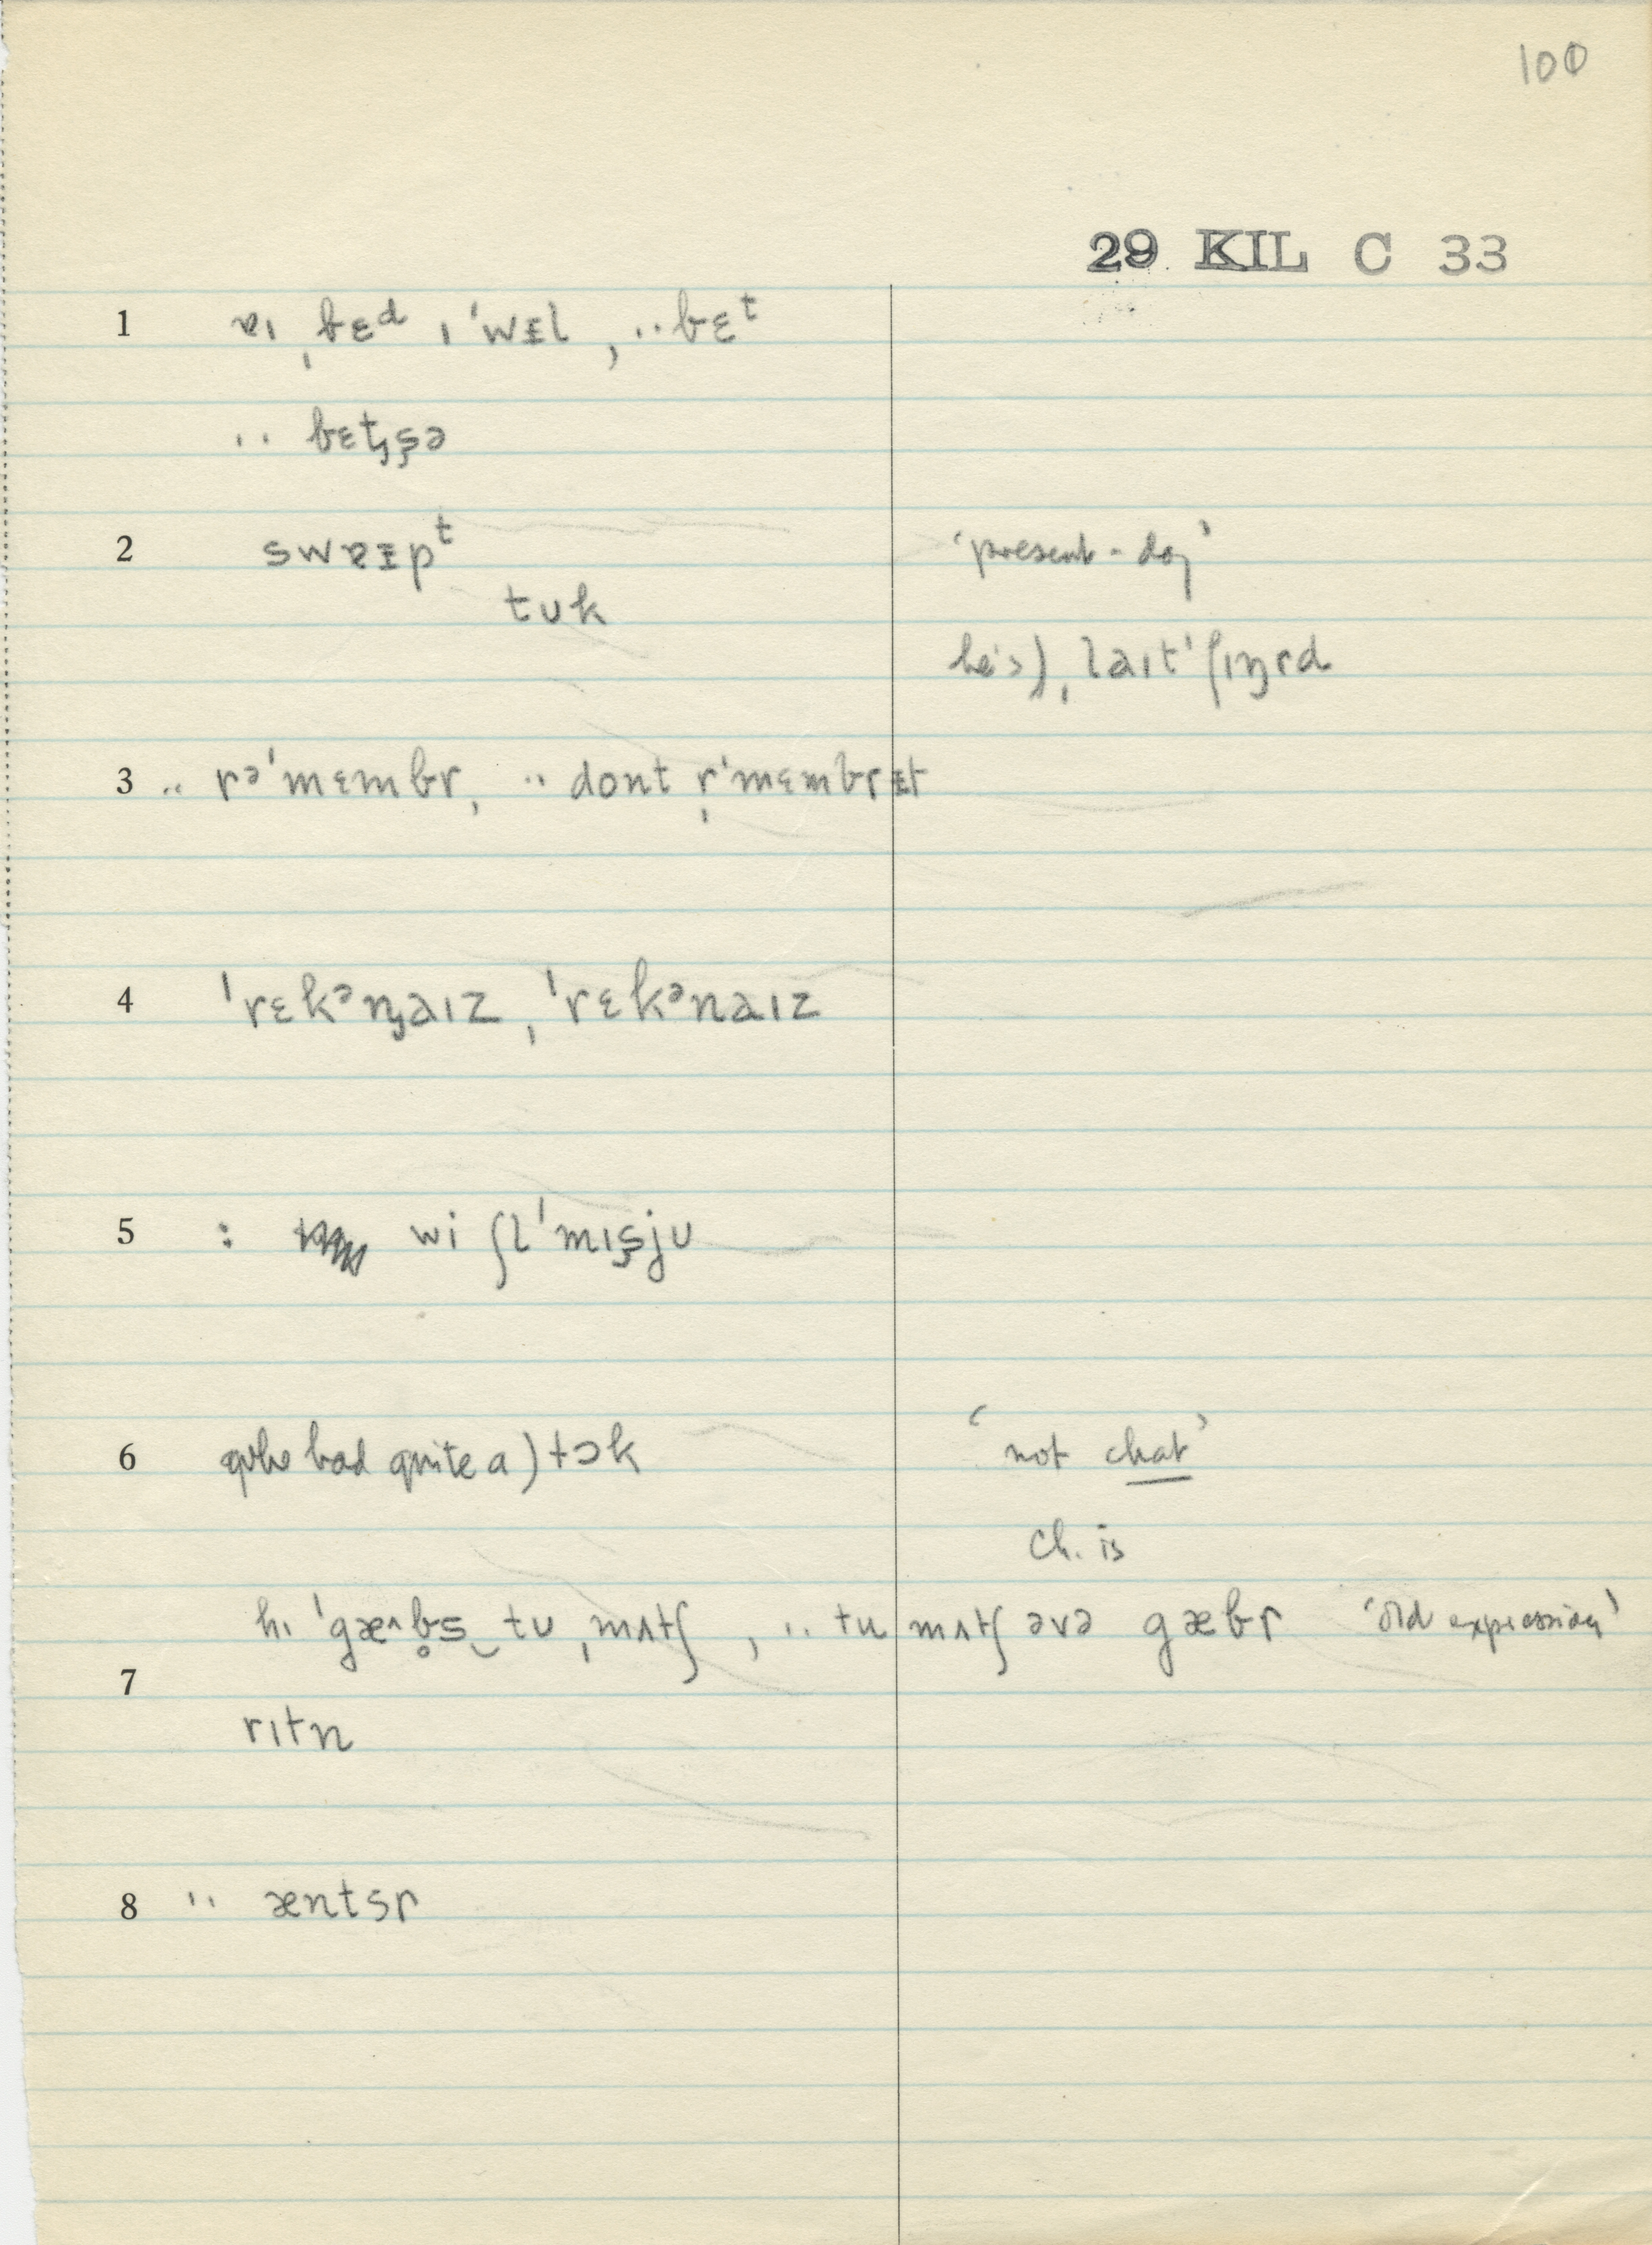 100
29 KIL C 33
1 ɐɪ ˌbɛᵈ ɪ ˈwᵻl , ·· bɛᵗ
·· bɛt̡ʂə
2 swɐᵻpᵗ 'present-day'
tuk
he's) ˌlaɪtˈfɪŋrd
3 ·· rəˈmɛmbr, ·· dont r̩ˈmɛmbrᵻt
4 ˈrɛkᵊŋaɪz, ˈrɛkᵊnaɪz
5 : wi ʃlˈmɪʂju
6 who had quite a) tɔk 'not chat'
ch. is
hɪ ˈgæ˄b̥s‿tu ˌmʌtʃ , ·· tu mʌtʃ əvə gæbr 'old expression'
7
rɪtn
8 ·· æntsr